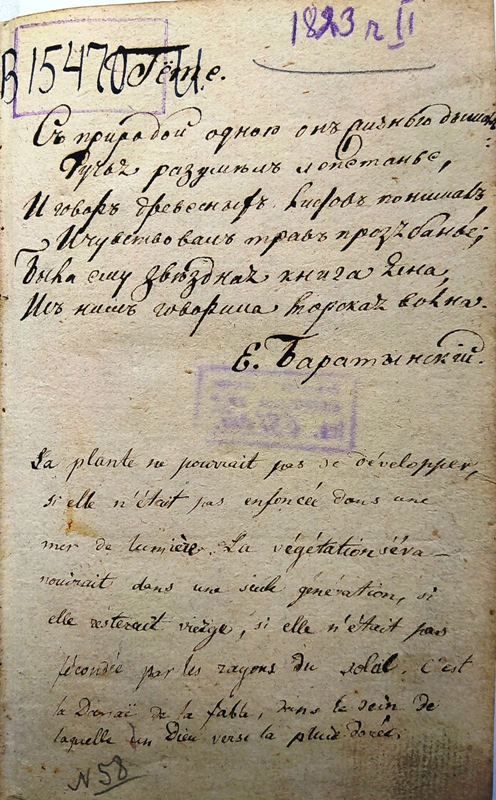 1823 г II
В 15470 U.
Гёте.
Съ природой одною онъ жизнью дышалъ:
Ручья разумѣлъ лепетанье,
И говоръ древесныхъ листовъ понималъ
И чувствовалъ травъ прозябанье;
Была ему звѣздная книга ясна,
Изъ нимъ говорила морская волна.
Е. Баратынскій.
La plante ne pourrait pas se développer,
si elle n'était pas enfoncée dans une
mer de lumière. La végétation s'éva-
nouirait dans une seule génération, si
elle resterait vierge, si elle n'était pas
fécondée par les rayons du soleil. C'est
la Danaë de la fable, dans le sein de
laquelle un Dieu verse la pluie dorée.
N 58